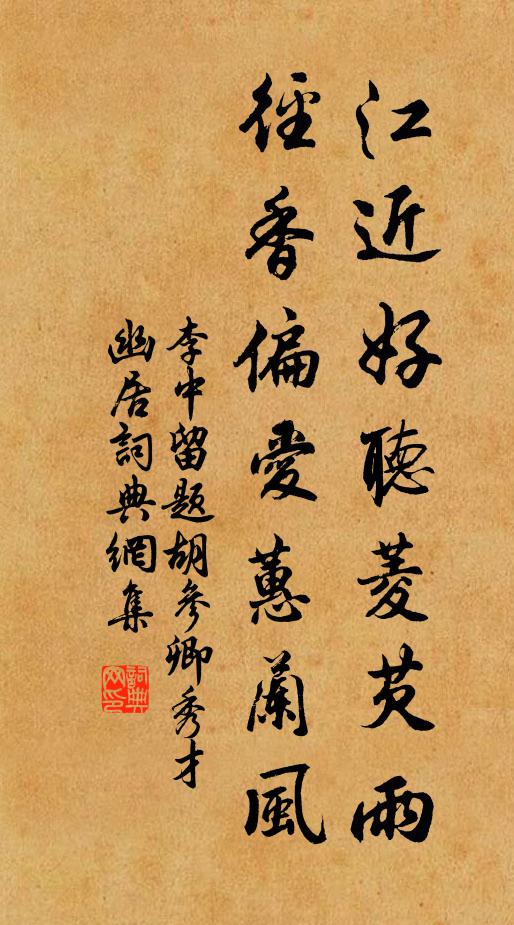 江近好聽菱芡雨
徑香偏愛蕙蘭風
李中留題胡參卿秀才
幽居詞典網集
詞典网印